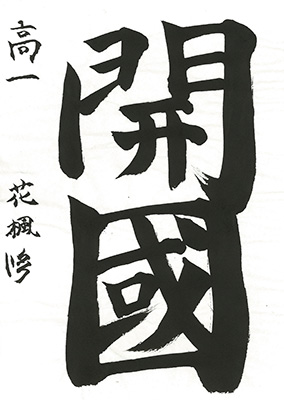 開國
高一 花楓